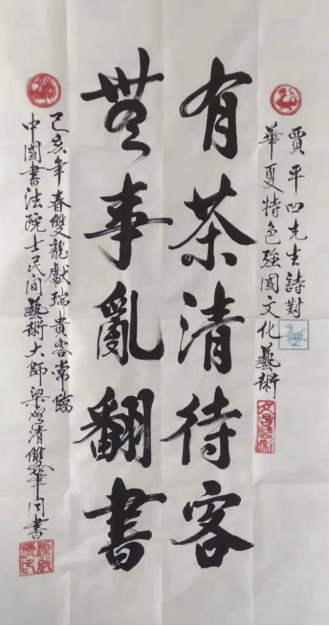 賈平凹先生詩對
華夏特色強國文化藝術
有茶清待客
無事亂翻書
己亥年春雙龍獻瑞貴客常臨
中國書法院士民间藝術大師梁清雙筆同書